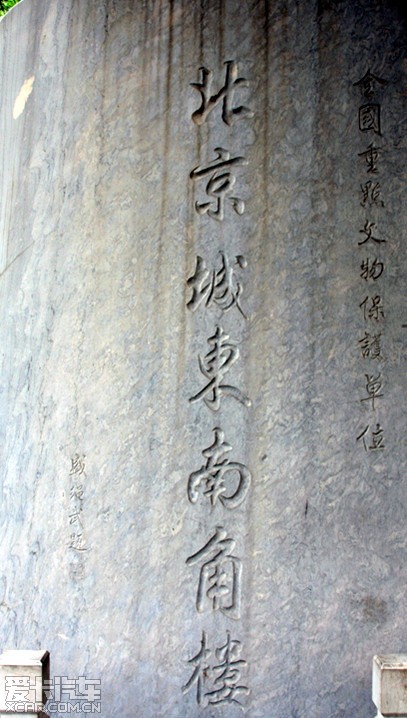 全國重點文物保護單位
北京城東南角樓
爱卡汽车
XCAR.COM.CN